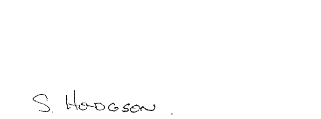 S. HODGSON.